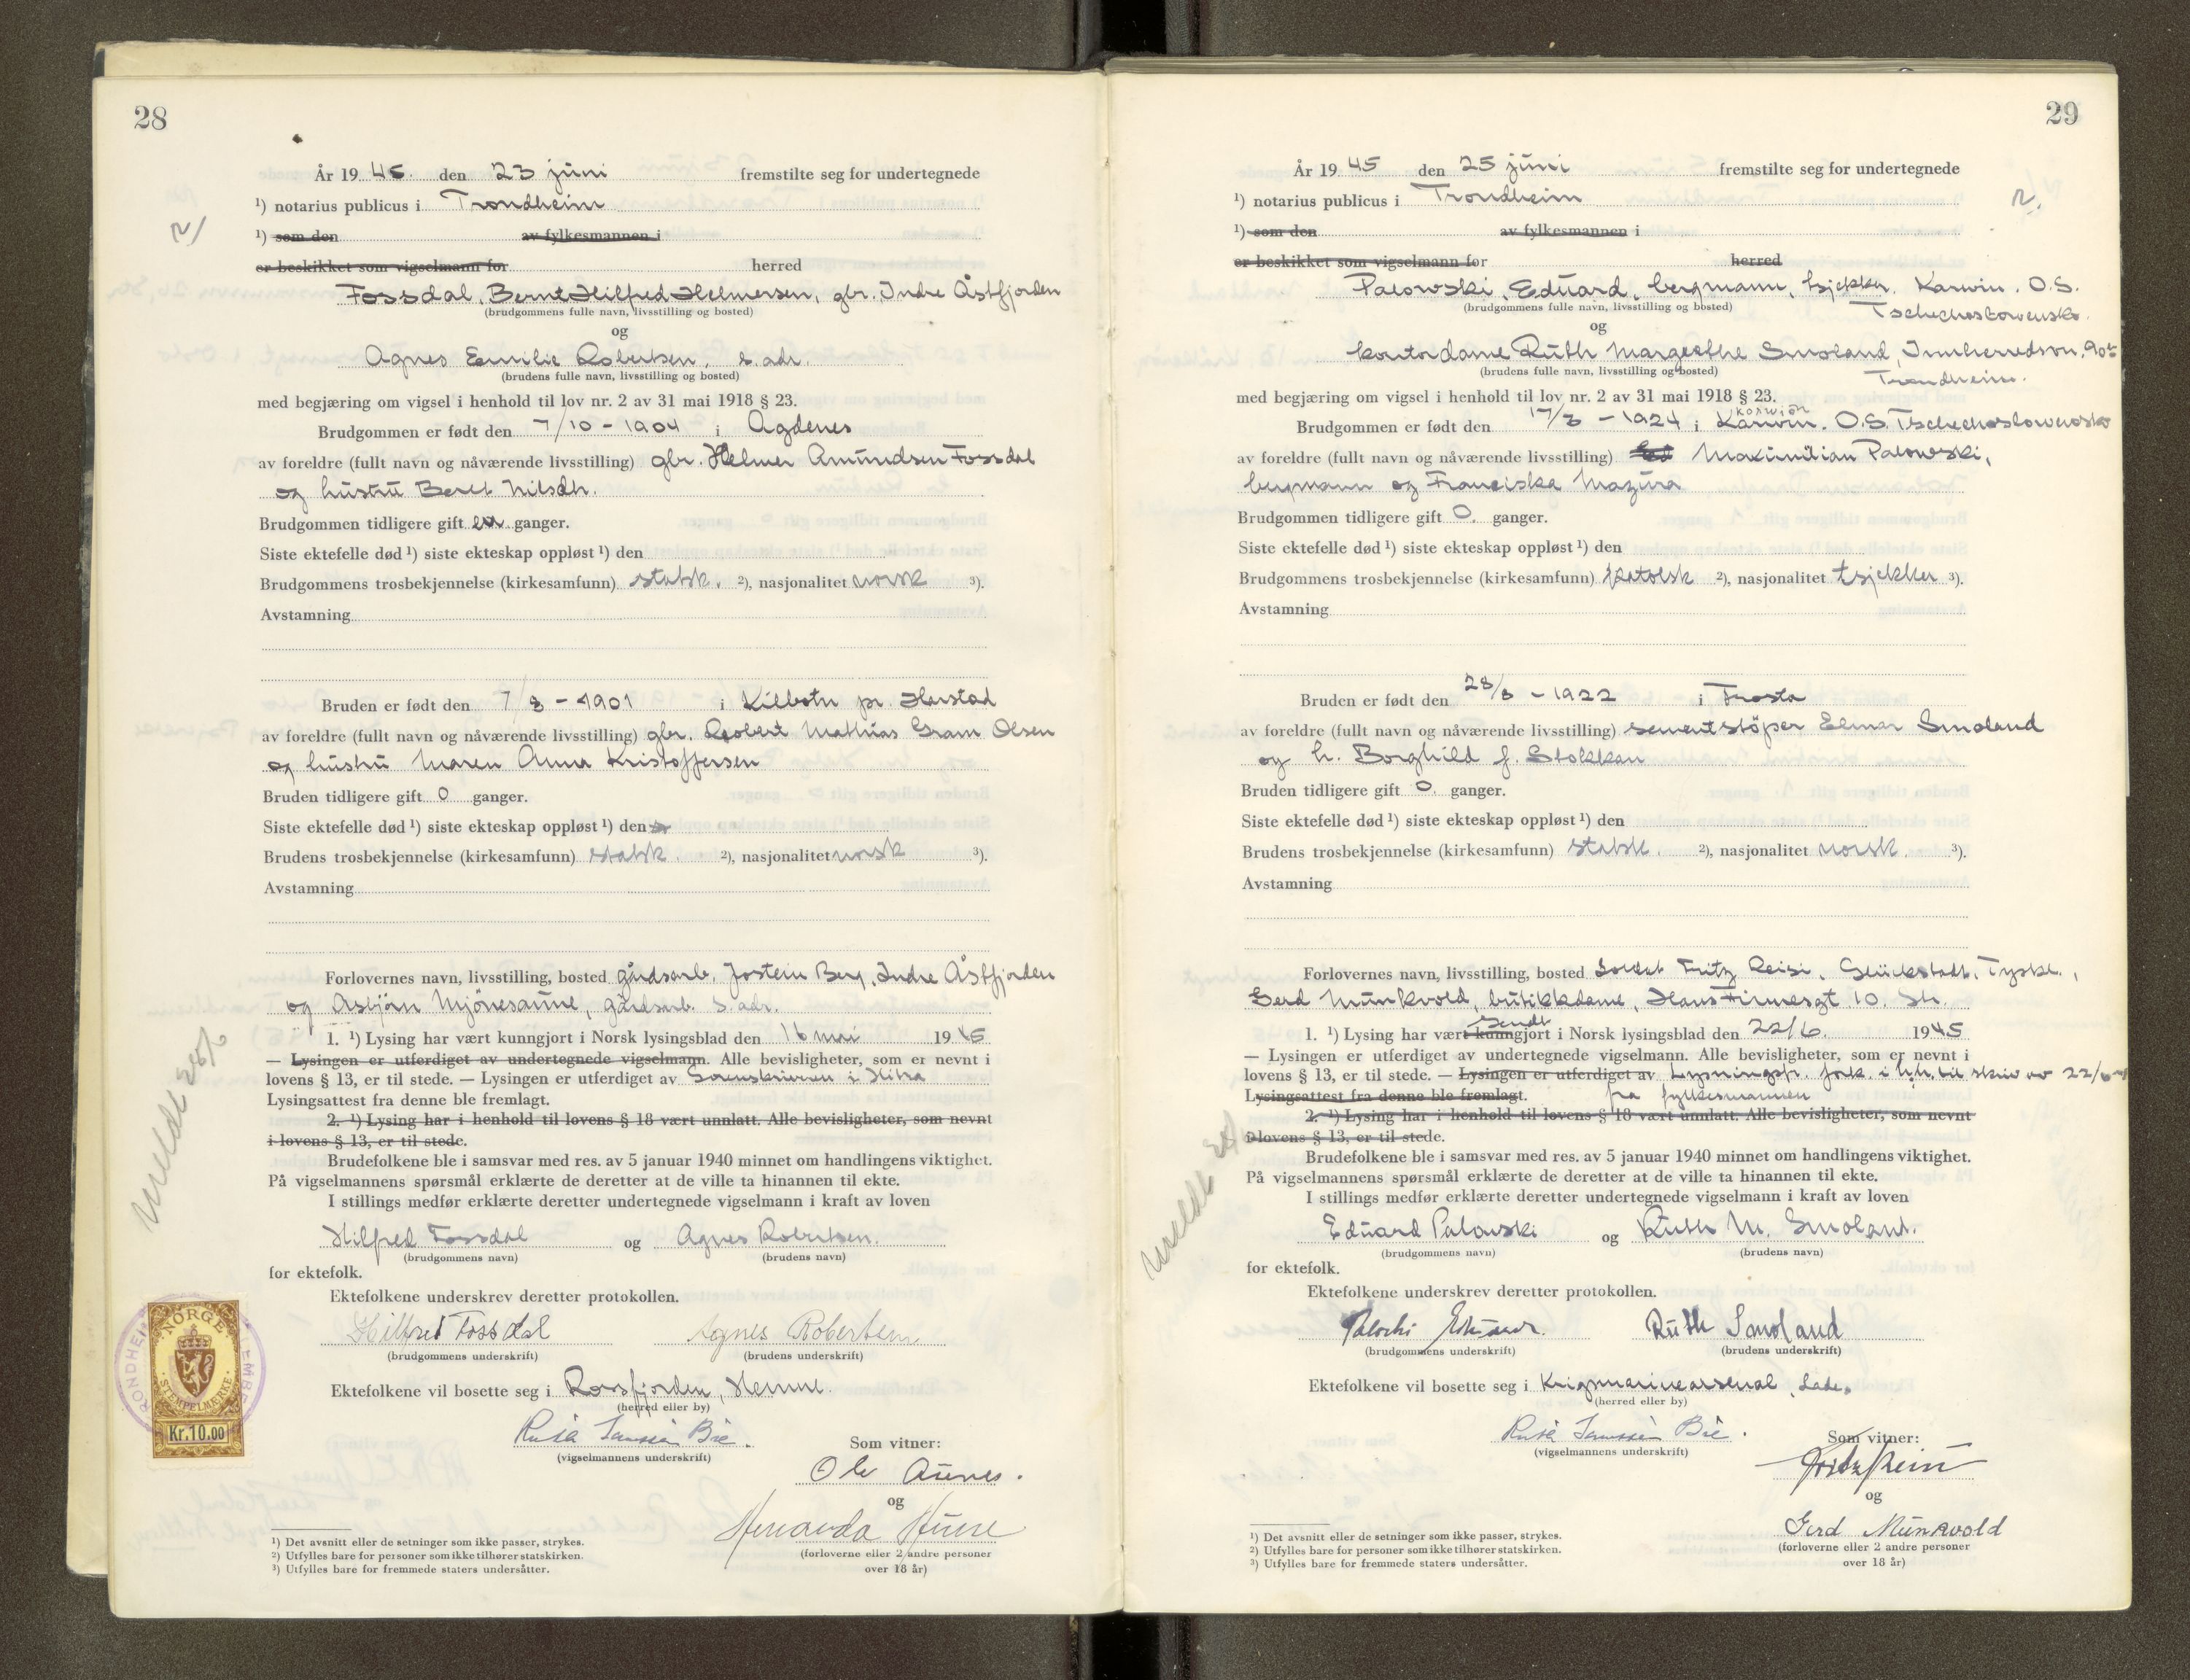 28
År 1945 den 23 juni fremstilte seg for undertegnede
¹) notarius publicus i Trondheim
¹) som den av fylkesmannen i
er beskikket som vigselmann for herred
Fossdal, Bernt Hilfred Helmersen, gbr. Indre Åstfjorden
(brudgommens fulle navn, livsstilling og bosted)
og
Agnes Emilie Robertsen, s. adr.
(brudens fulle navn, livsstilling og bosted)
med begjæring om vigsel i henhold til lov nr. 2 av 31 mai 1918 § 23.
Brudgommen er født den 7/10 - 1904 i Agdenes
av foreldre (fullt navn og nåværende livsstilling) gbr. Helmer Amundsen Fossdal
og hustru Beret Nilsdtr.
Brudgommen tidligere gift ganger.
Siste ektefelle død ¹) siste ekteskap oppløst ¹) den
Brudgommens trosbekjennelse (kirkesamfunn) statsk. ²), nasjonalitet norsk ³).
Avstamning
Bruden er født den 7/8 - 1901 i Kilbotn pr. Harstad
av foreldre (fullt navn og nåværende livsstilling) gbr. Robert Mathias Gram Olsen
og hustru Maren Anna Kristoffersen
Bruden tidligere gift 0 ganger.
Siste ektefelle død ¹) siste ekteskap oppløst ¹) den
Brudens trosbekjennelse (kirkesamfunn) statsk. ²), nasjonalitet norsk ³).
Avstamning
Forlovernes navn, livsstilling, bosted gårdsarb. Jostein Berg, Indre Åstfjorden
og Asbjörn Mjönesaune, gårdsarb. s. adr.
1. ¹) Lysing har vært kunngjort i Norsk lysingsblad den 16 mai 1945
— Lysingen er utferdiget av undertegnede vigselmann. Alle bevisligheter, som er nevnt i
lovens § 13, er til stede. — Lysingen er utferdiget av Sorenskriveren i Hitra
Lysingsattest fra denne ble fremlagt.
2. ¹) Lysing har i henhold til lovens § 18 vært unnlatt. Alle bevisligheter, som nevnt
i lovens § 13, er til stede.
Brudefolkene ble i samsvar med res. av 5 januar 1940 minnet om handlingens viktighet.
På vigselmannens spørsmål erklærte de deretter at de ville ta hinannen til ekte.
I stillings medfør erklærte deretter undertegnede vigselmann i kraft av loven
Hilfred Fossdal og Agnes Robertsen.
(brudgommens navn) (brudens navn)
for ektefolk.
Ektefolkene underskrev deretter protokollen.
Hilfred Fossdal Agnes Robertsen
(brudgommens underskrift) (brudens underskrift)
Ektefolkene vil bosette seg i Rossfjorden, Hemne.
(herred eller by)
(vigselmannens underskrift)
Som vitner:
Ole Aunes.
og
(forloverne eller 2 andre personer
over 18 år)
¹) Det avsnitt eller de setninger som ikke passer, strykes.
²) Utfylles bare for personer som ikke tilhører statskirken.
³) Utfylles bare for fremmede staters undersåtter.
Meldt
NORGE
STEMPELMERKE
Kr.10.00
29
År 1945 den 25 juni fremstilte seg for undertegnede
¹) notarius publicus i Trondheim
¹) som den av fylkesmannen i
er beskikket som vigselmann for herred
Palowski, Eduard, bergmann, tsjekker. Karwin. O.S.
Tschechoslowenska.
(brudgommens fulle navn, livsstilling og bosted)
og
kontordame Ruth Margrethe Smoland, Innherredsvn. 90
Trondheim.
(brudens fulle navn, livsstilling og bosted)
med begjæring om vigsel i henhold til lov nr. 2 av 31 mai 1918 § 23.
Brudgommen er født den 17/3 - 1924 i Karwin. O.S. Tschechoslowenska
av foreldre (fullt navn og nåværende livsstilling) Maximilian Palowski,
bergmann og Franciska Mazura
Brudgommen tidligere gift 0. ganger.
Siste ektefelle død ¹) siste ekteskap oppløst ¹) den
Brudgommens trosbekjennelse (kirkesamfunn) katolsk ²), nasjonalitet tsjekker ³).
Avstamning
Bruden er født den 28/8 - 1922 i Frosta
av foreldre (fullt navn og nåværende livsstilling) sementstöper Elmar Smoland
og h. Borghild f. Stokkan
Bruden tidligere gift 0. ganger.
Siste ektefelle død ¹) siste ekteskap oppløst ¹) den
Brudens trosbekjennelse (kirkesamfunn) statsk. ²), nasjonalitet norsk. ³).
Avstamning
Forlovernes navn, livsstilling, bosted Soldat Fritz Reisi, Glückstadt, Tyskl.,
Gerd Munkvold, butikkdame, Hans Finnesgt 10. Str.
sendt
1. ¹) Lysing har vært kunngjort i Norsk lysingsblad den 22/6. 1945
— Lysingen er utferdiget av undertegnede vigselmann. Alle bevisligheter, som er nevnt i
lovens § 13, er til stede. — Lysingen er utferdiget av Lysningsfr. fork. i h.h. til skriv av 22/6
Lysingsattest fra denne ble fremlagt. fra fylkesmannen
2. ¹) Lysing har i henhold til lovens § 18 vært unnlatt. Alle bevisligheter, som nevnt
i lovens § 13, er til stede.
Brudefolkene ble i samsvar med res. av 5 januar 1940 minnet om handlingens viktighet.
På vigselmannens spørsmål erklærte de deretter at de ville ta hinannen til ekte.
I stillings medfør erklærte deretter undertegnede vigselmann i kraft av loven
Eduard Palowski og Ruth M. Smoland.
(brudgommens navn) (brudens navn)
for ektefolk.
Ektefolkene underskrev deretter protokollen.
Ruth Smoland
(brudgommens underskrift) (brudens underskrift)
Ektefolkene vil bosette seg i Krigmarinearsenal, Lade.
(herred eller by)
(vigselmannens underskrift)
Som vitner:
og
Gerd Munkvold
(forloverne eller 2 andre personer
over 18 år)
¹) Det avsnitt eller de setninger som ikke passer, strykes.
²) Utfylles bare for personer som ikke tilhører statskirken.
³) Utfylles bare for fremmede staters undersåtter.
Meldt